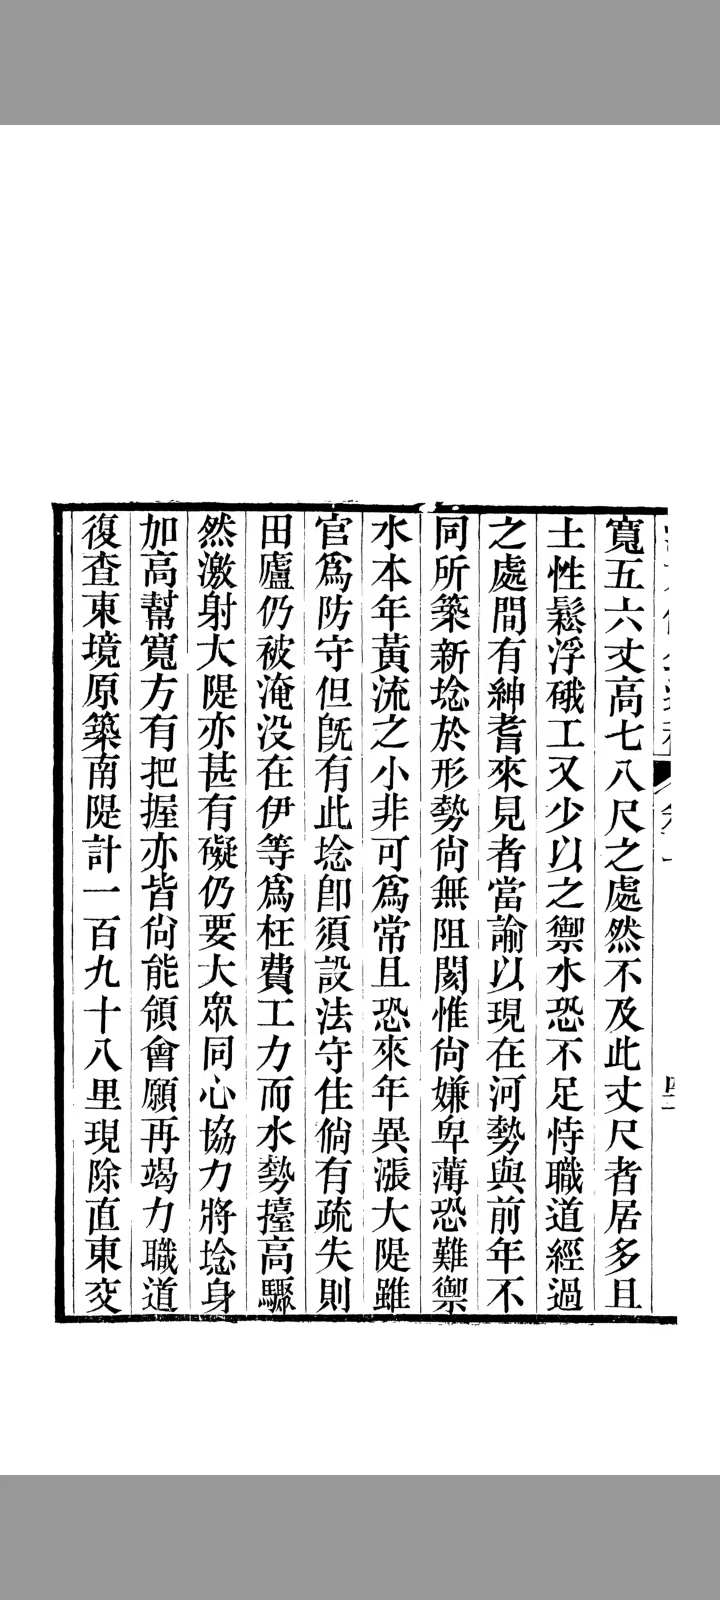 寬五六丈高七八尺之處然不及此丈尺者居多且
土性鬆浮硪工又少以之禦水恐不足恃職道經過
之處間有紳耆來見者當諭以現在河勢與前年不
同所築新埝於形勢尙無阻閡惟尙嫌卑薄恐難禦
水本年黃流之小非可爲常且恐來年異漲大隄雖
官爲防守但旣有此埝卽須設法守住倘有疏失則
田廬仍被淹没在伊等爲枉費工力而水勢擡高驟
然激射大隄亦甚有礙仍要大眾同心協力將埝身
加高幫寬方有把握亦皆尙能領會願再竭力職道
復查東境原築南隄計一百九十八里現除直東交